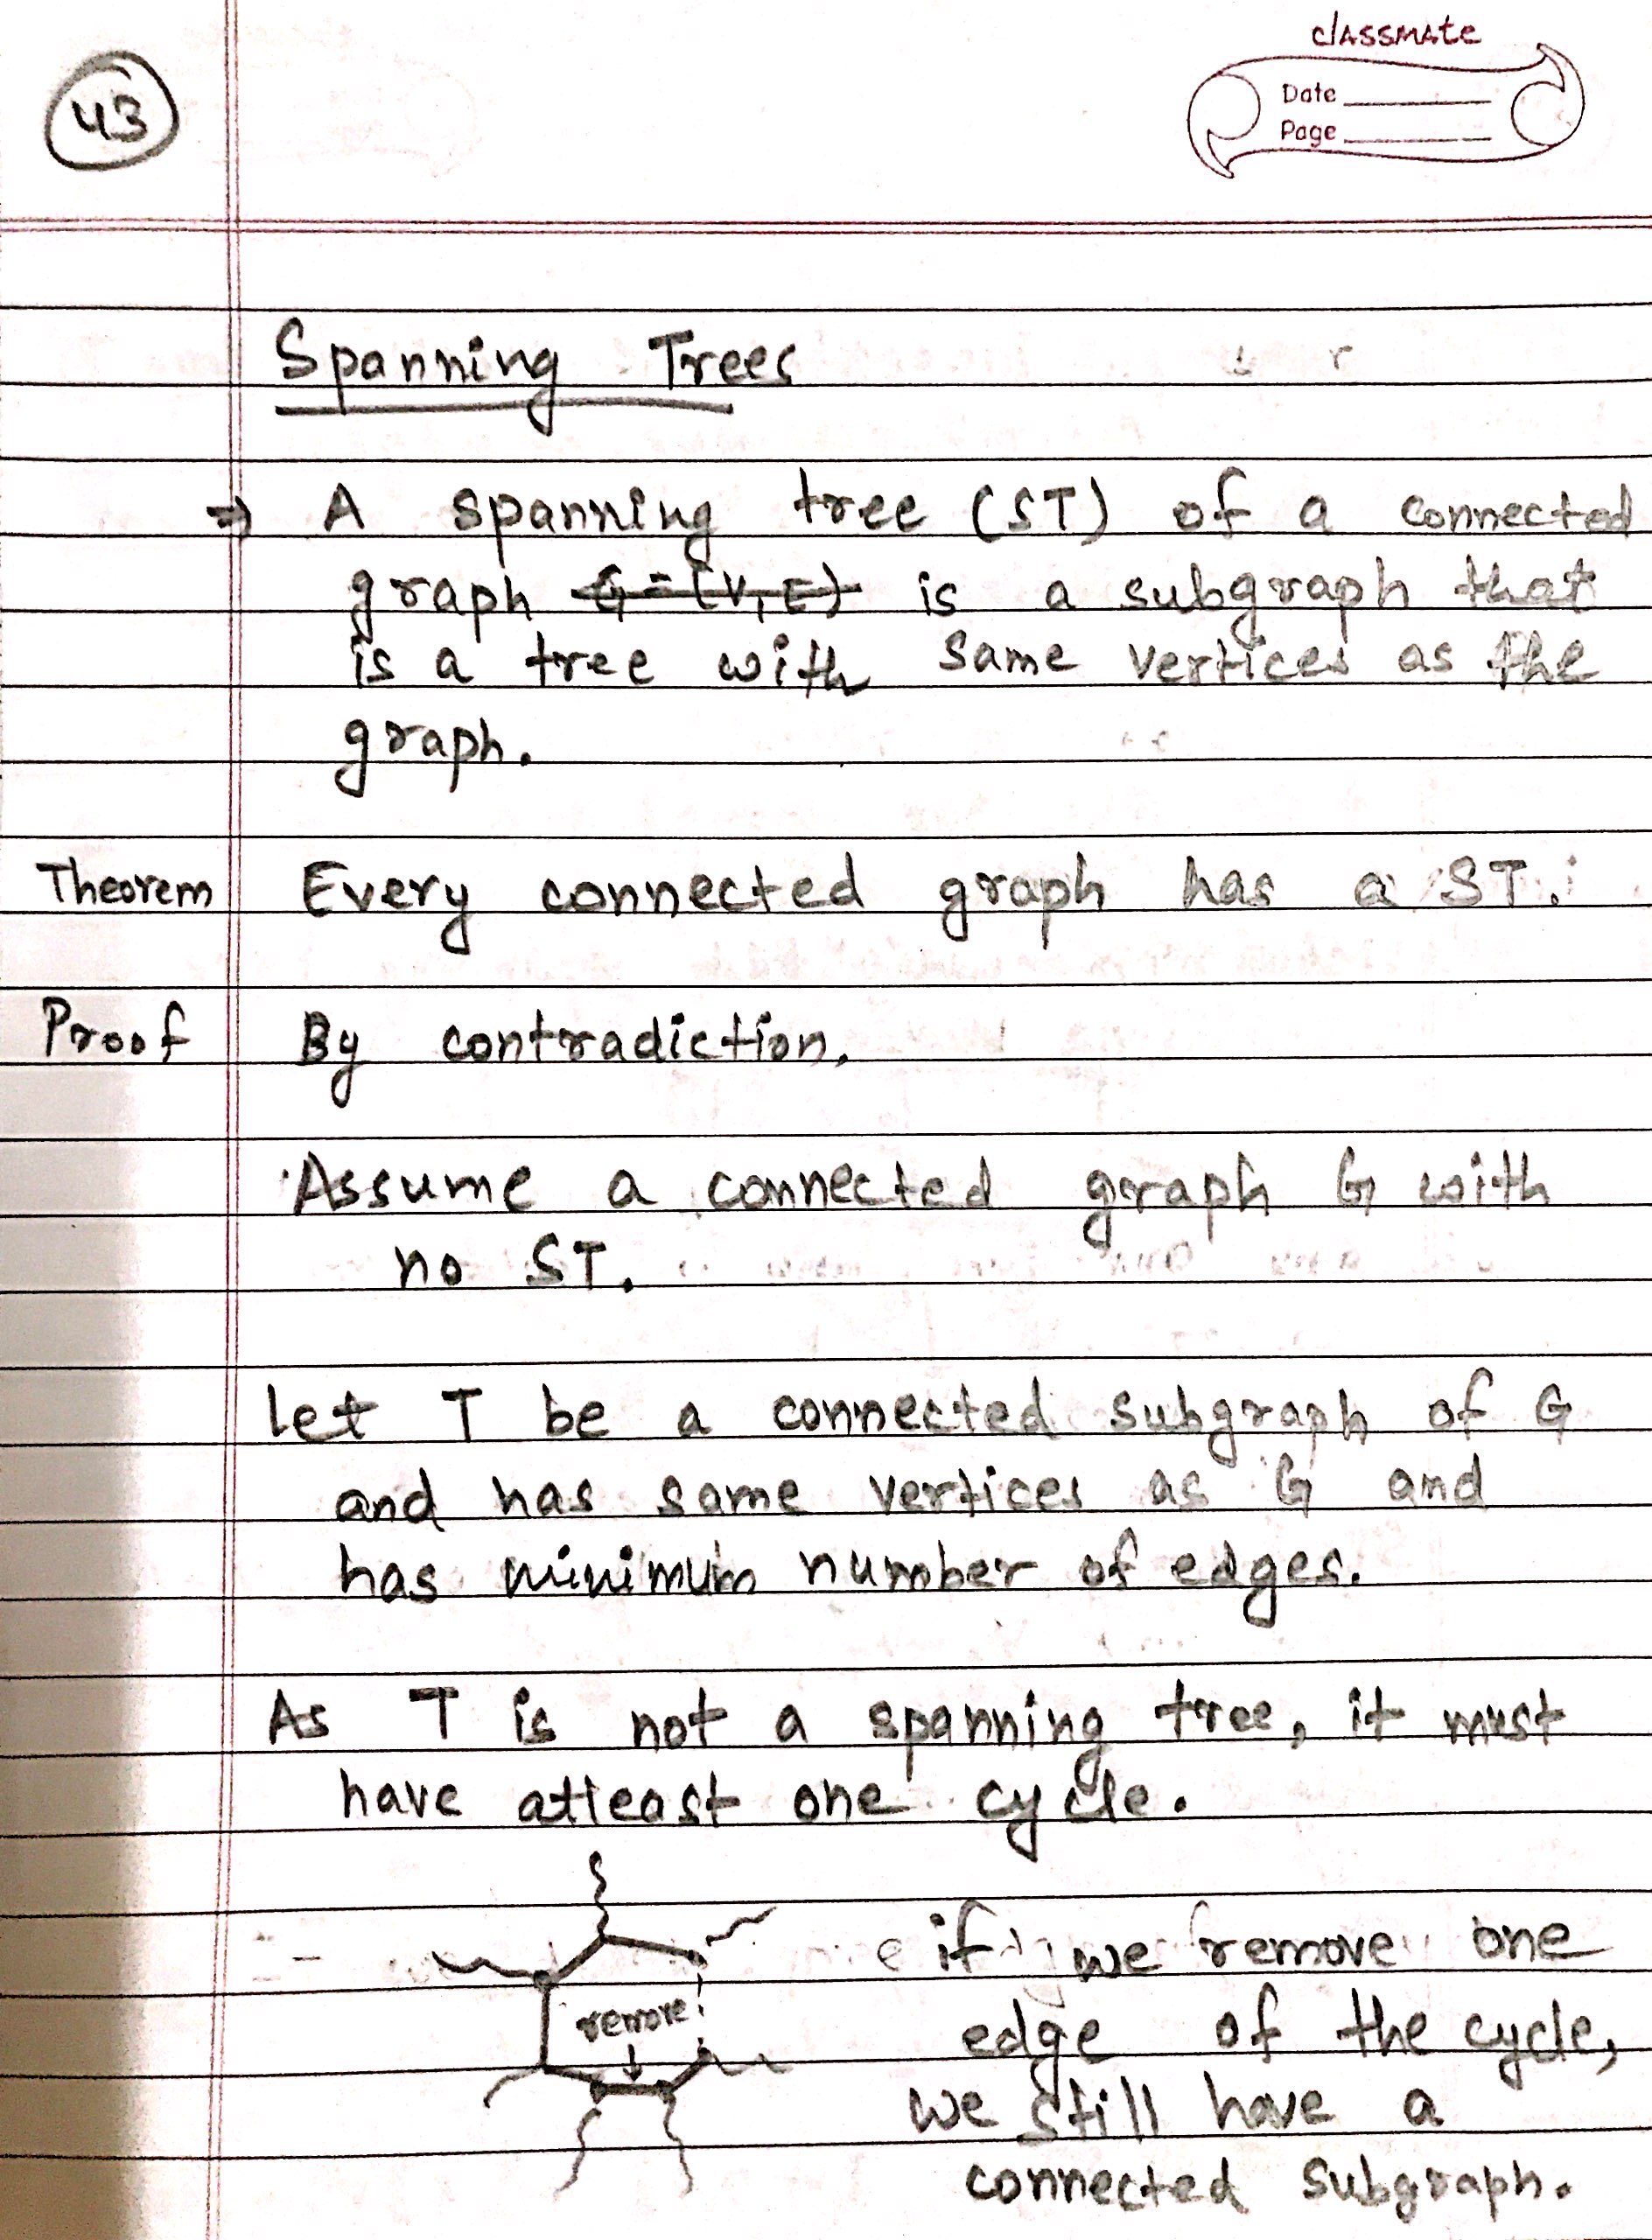 classmate
Date
Page
43
Spanning Trees
⇒ A spanning tree (ST) of a connected
graph G=(V,E) is a subgraph that
is a tree with same vertices as the
graph.
Theorem Every connected graph has a ST.
Proof By contradiction.
Assume a connected graph G with
no ST.
Let T be a connected subgraph of G
and has same vertices as G and
has minimum number of edges.
As T is not a spanning tree, it must
have atleast one cycle.
remove
if we remove one
edge of the cycle,
we still have a
connected subgraph.